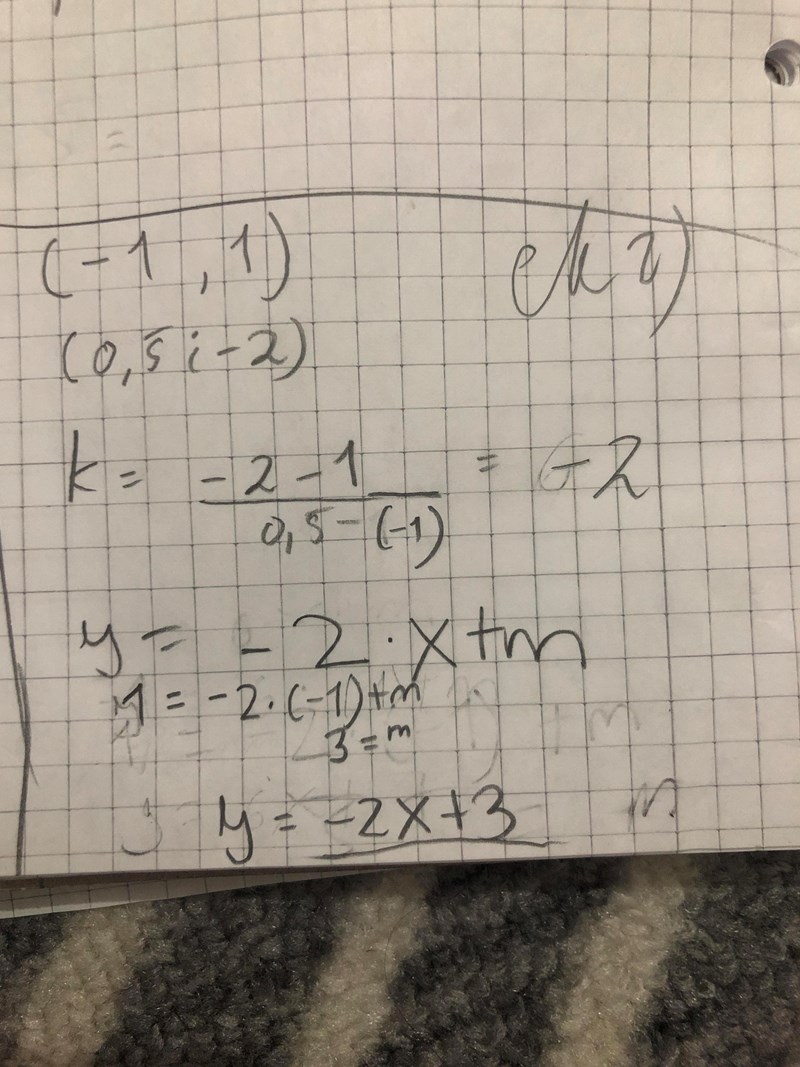 (-1, 1)
(0,5; -2)
k = (-2-1)/(0,5-(-1)) = -2
y = -2·x+m
1 = -2·(-1)+m
3 = m
y = -2x+3
m